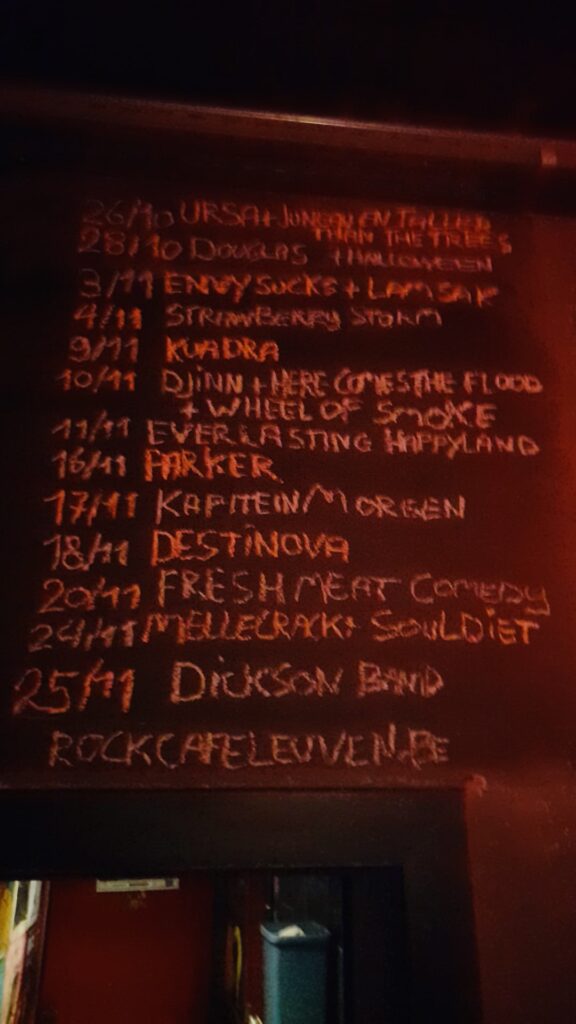 26/10 URSA + JUNGON EN TALLER
THAN THE TREES
28/10 DOUGLAS + HALLOWEEN
3/11 ENVY SUCKS + LAMSAK
4/11 STRAWBERRY STORM
9/11 KUADRA
10/11 DJINN + HERE COMES THE FLOOD
+ WHEEL OF SMOKE
11/11 EVERLASTING HAPPYLAND
16/11 PARKER
17/11 KAPITEIN MORGEN
18/11 DESTINOVA
20/11 FRESH MEAT COMEDY
24/11 MELLECRACK + SOULDIET
25/11 DICKSON BAND
ROCKCAFELEUVEN.BE